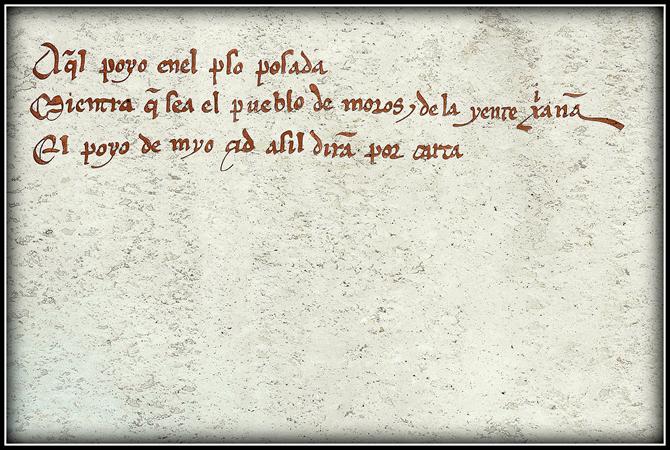 Aq̃l poyo enel pſo poſada
Mientra q̃ ſea el pueblo de moros, de la yente xíanã
El poyo de myo çid aſil dirã por carta